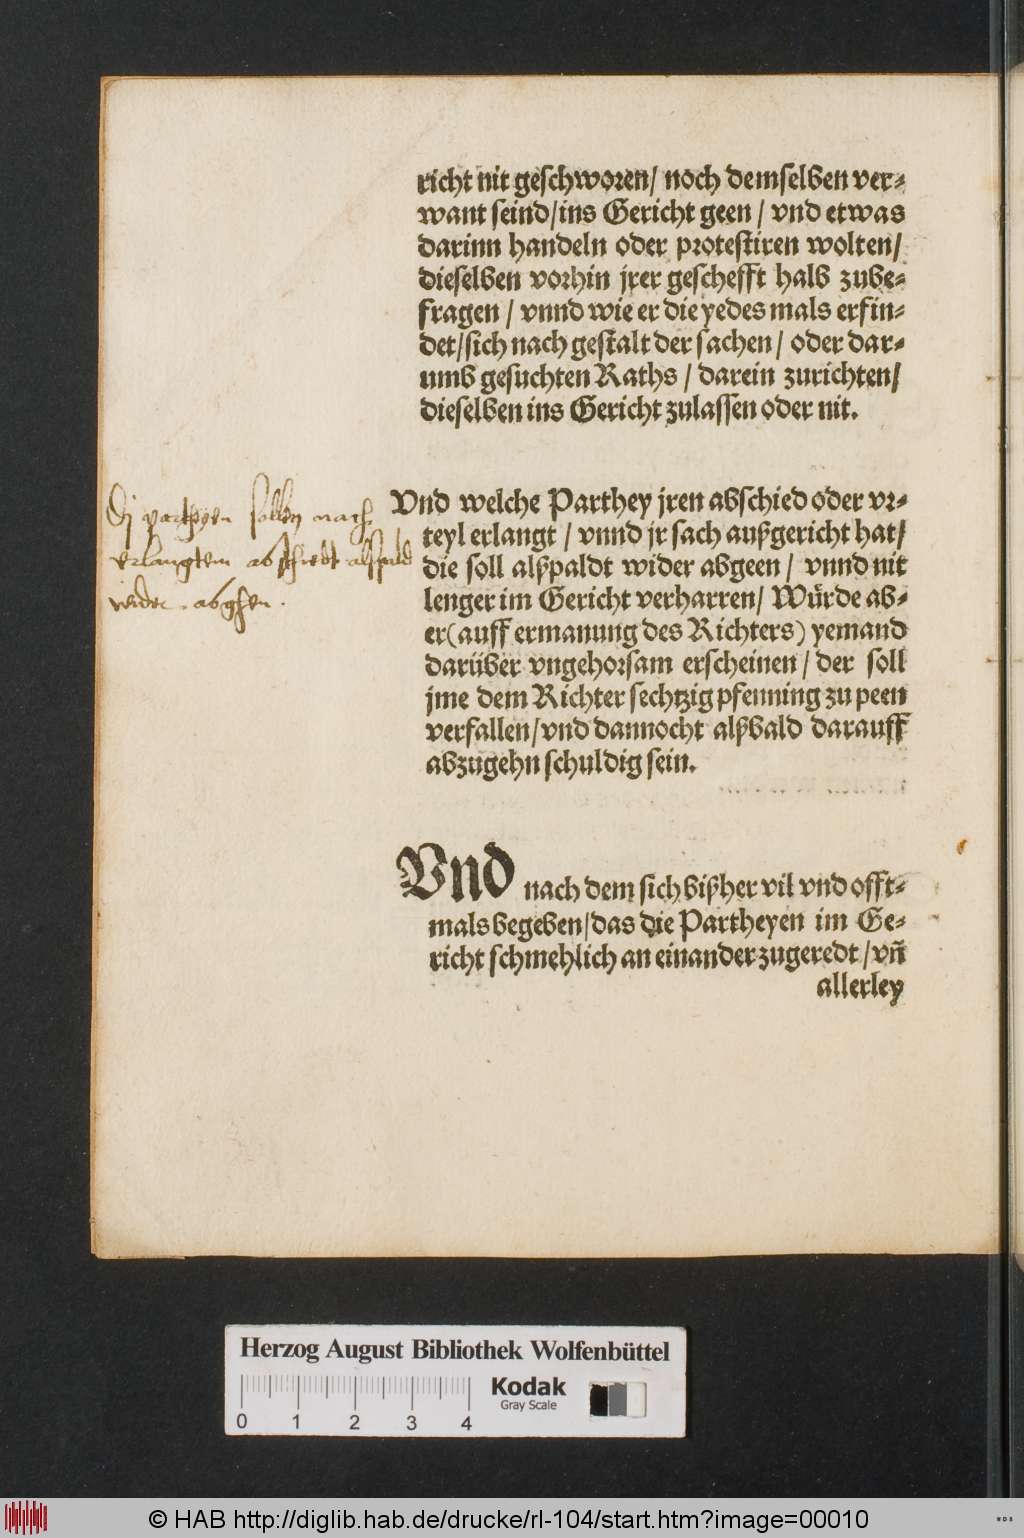 richt nit geschworen/ noch demselben ver-
want seind/ins Gericht geen / vnd etwas
darinn handeln oder protestiren wolten/
dieselben vorhin jrer geschefft halb zube-
fragen / vnnd wie er die yedes mals erfin-
det/sich nach gestalt der sachen / oder dar-
umb gesuchten Raths / darein zurichten/
dieselben ins Gericht zulassen oder nit.
Di partheyen sollen nach
erlangtem abschiedt alspald
wider abghen.
Vnd welche Parthey jren abschied oder vr-
teyl erlangt / vnnd jr sach außgericht hat/
die soll alßpaldt wider abgeen / vnnd nit
lenger im Gericht verharren/ Würde ab-
er(auff ermanung des Richters) yemand
darüber vngehorsam erscheinen / der soll
jme dem Richter sechtzig pfenning zu peen
verfallen/vnd dannocht alßbald darauff
abzugehn schuldig sein.
Vnd nach dem sich bißher vil vnd offt-
mals begeben/das die Partheyen im Ge-
richt schmehlich an einander zugeredt /vñ
allerley
Herzog August Bibliothek Wolfenbüttel
Kodak
Gray Scale
0 1 2 3 4
© HAB http://diglib.hab.de/drucke/rl-104/start.htm?image=00010